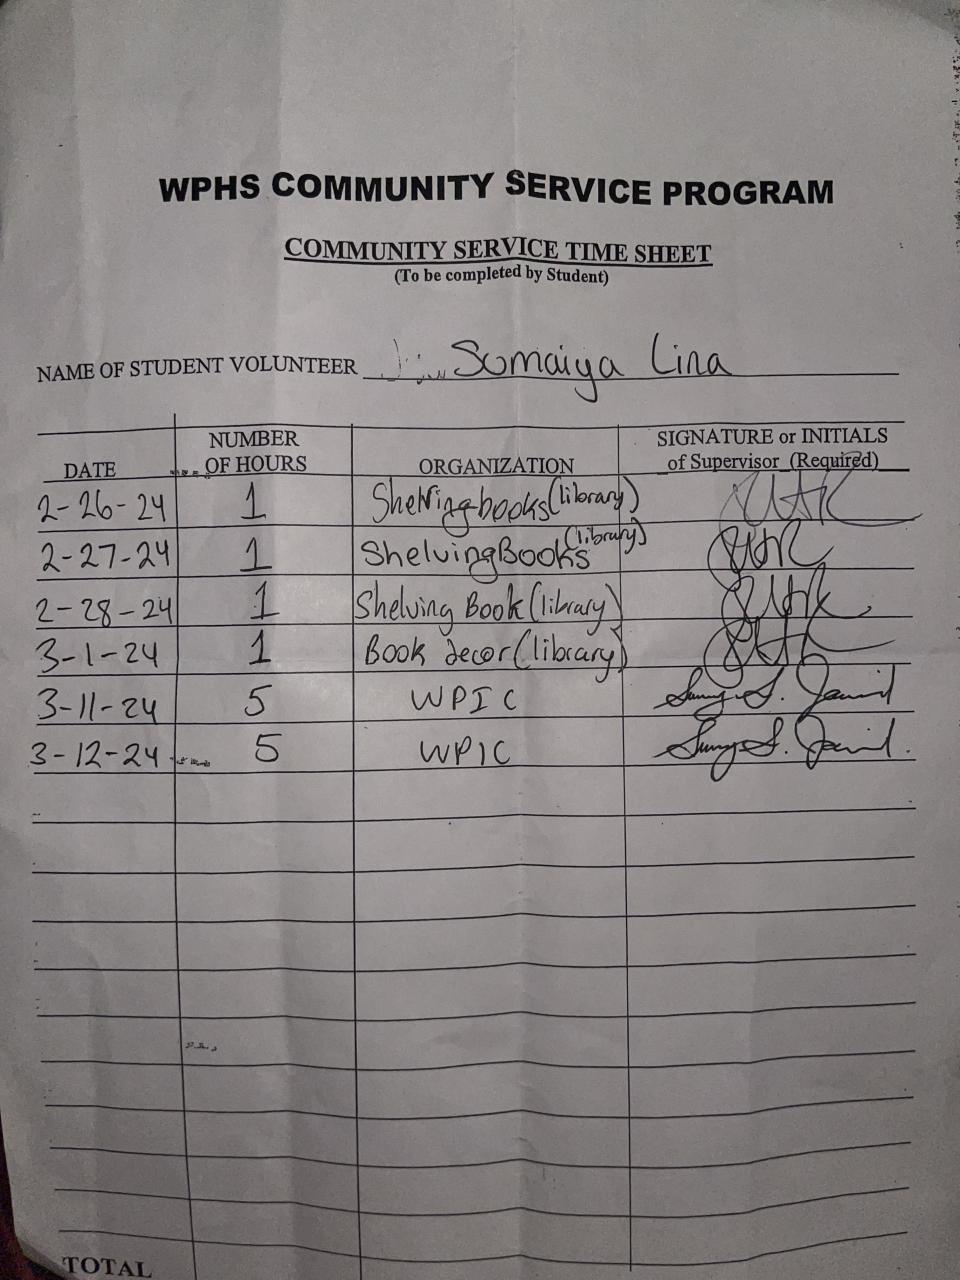 WPHS COMMUNITY SERVICE PROGRAM
COMMUNITY SERVICE TIME SHEET
(To be completed by Student)
NAME OF STUDENT VOLUNTEER Sumaiya Lina
DATE NUMBER OF HOURS ORGANIZATION SIGNATURE or INITIALS of Supervisor (Required)
2-26-24 1 Shelving books (library)
2-27-24 1 Shelving Books (library)
2-28-24 1 Shelving Book (library)
3-1-24 1 Book decor (library)
3-11-24 5 WPIC
3-12-24 5 WPIC
TOTAL